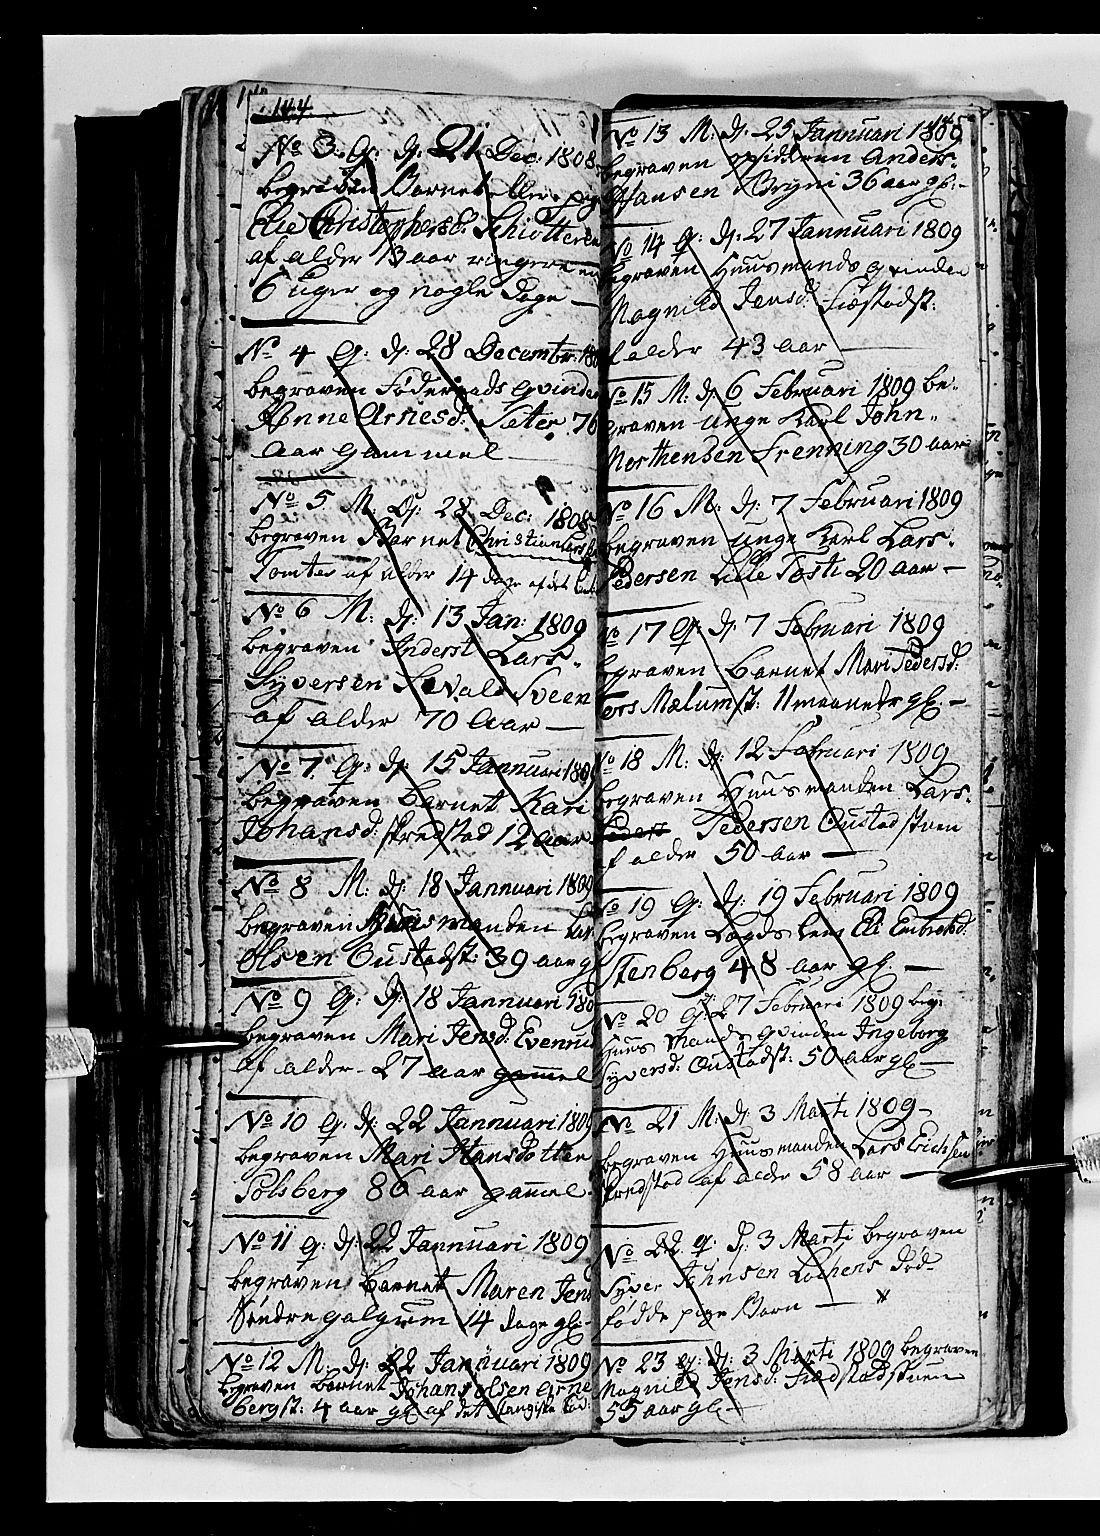 144
No 3. Q: d: 21 Dec: 1808
begraven Barnet eller pige
Else Christophersd: Schiøtteren
af alder 13 aar ringere en
6 uger og nogle Dage —
No 4 Q: d: 28 Decembr: 180
begraven Føderaads qvinden
Anne Arnesd: Seter 76
Aar gammel —
No 5 M. d: 28 Dec: 1808
begraven Barnet Christian Lars
Tomter af alder 14 dage af det
No 6 M: d: 13 Jan: 1809
begraven Inderst Lars
Syversen Sveen
af alder 70 Aar —
No 7 Q: d: 15 Jannuari 1809
begraven barnet Kari
Johansd: fredstad 12 aar
No 8 M: d: 18 Jannuari 1809
begraven Huusmanden Lar
Olsen Oustadst: 39 aar g
No 9 Q: d: 18 Jannuari 180
begraven Mari Jensd: Evenrud
af alder 27 aar gamel
No 10 Q: d: 22 Jannuari 1809
begraven Mari Hansdotter
Solsberg 86 aar gamel
No 11 Q: d: 22 Jannuari 1809
begraven barnet Maren Jens
Søndre galgum 14 dage gl: —
No 12 M: d: 22 Januari 1809
begraven barnet Johans Olsen Arne
bergst: 4 aar gl af det
No 13 M: d: 25 Jannuari 1809
begraven Anders
Hansen Bryni 36 aar gl: —
No 14 Q: d: 27 Jannuari 1809
begraven Huusmands qvinden
Magnild Jensd: Fiøstadst:
f alder 43 aar —
No 15 M: d 6 Februari 1809 be
graven unge Karl John
Morthensen Frenning 30 aar
No 16 M: d: 7 Februari 1809
begraven unge Karl Lars
Pedersen Lille Tosti 20 aar —
No 17 Q: d: 7 Februari 1809
begraven barnet Mari Pedersd:
Mælumst: 11 maaneder gl: —
No 18 M: d: 12 Februari 1809
begraven Huusmanden Lars
Pedersen Oustadstuen
f alder 50 aar —
No 19 Q: d: 19 Februari 1809
begraven Lægds lem Eli Embretsd:
Stenberg 48 aar gl —
No 20 Q: d: 27 Februari 1809 beg:
Huus Mands qvinden Ingeborg
Syversd: Oustadst: 50 aar gl —
No 21 M: d: 3 Marti 1809 —
begraven Huusmanden Lars Erichsen
fredstad af alder 58 aar —
No 22 q: d: 3 Marti begraven
Syver Johnsen Lochens død
fødde pige Barn —
No 23 q: d: 3 Marti 1809 begraven
Magnild Jensd: Fiødstadstuen
55 aar gl: —